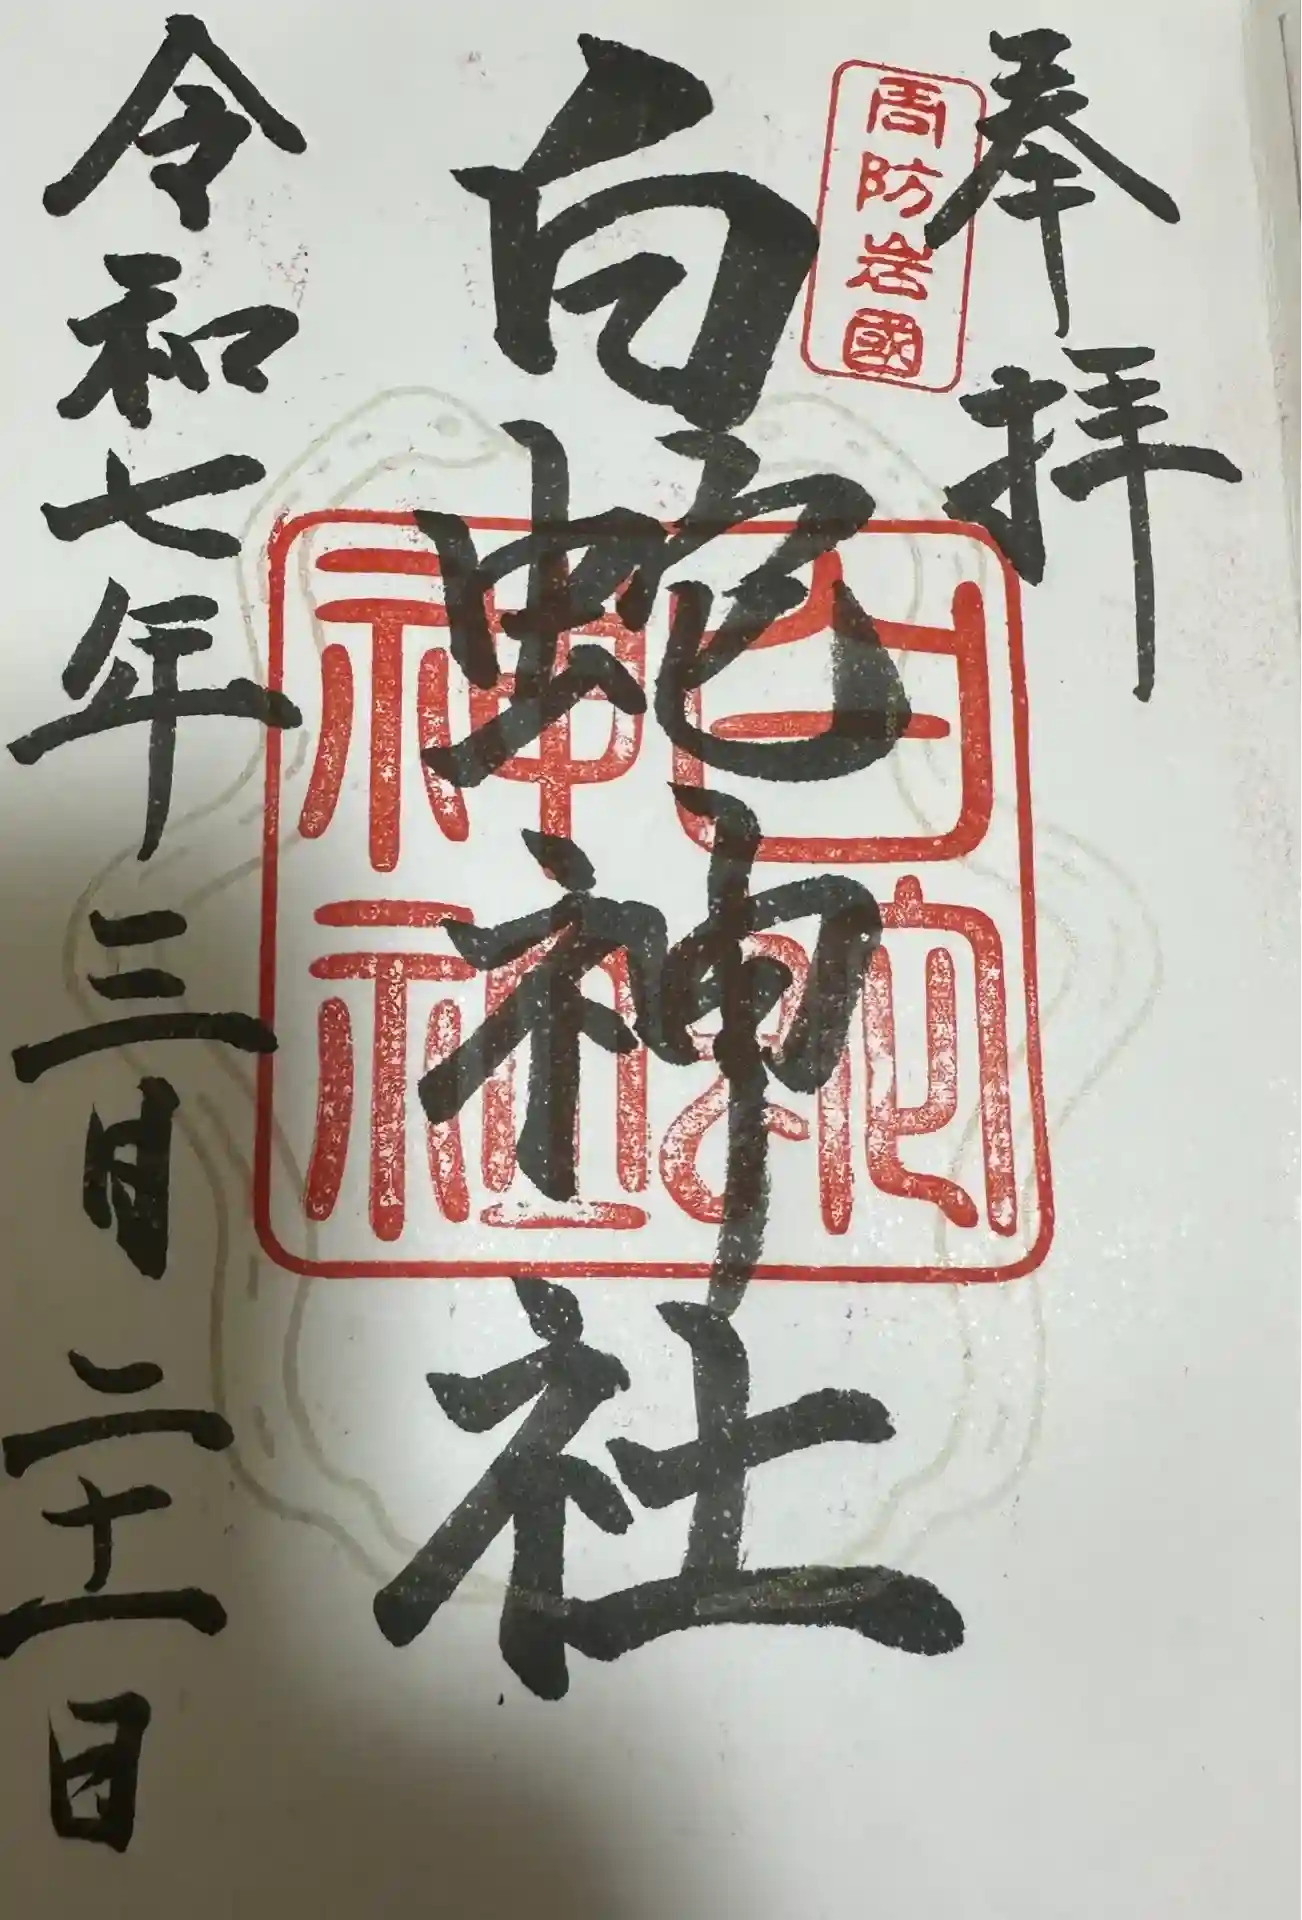 奉拝
周防岩國
白蛇神社
白蛇
神社
令和七年三月二十一日